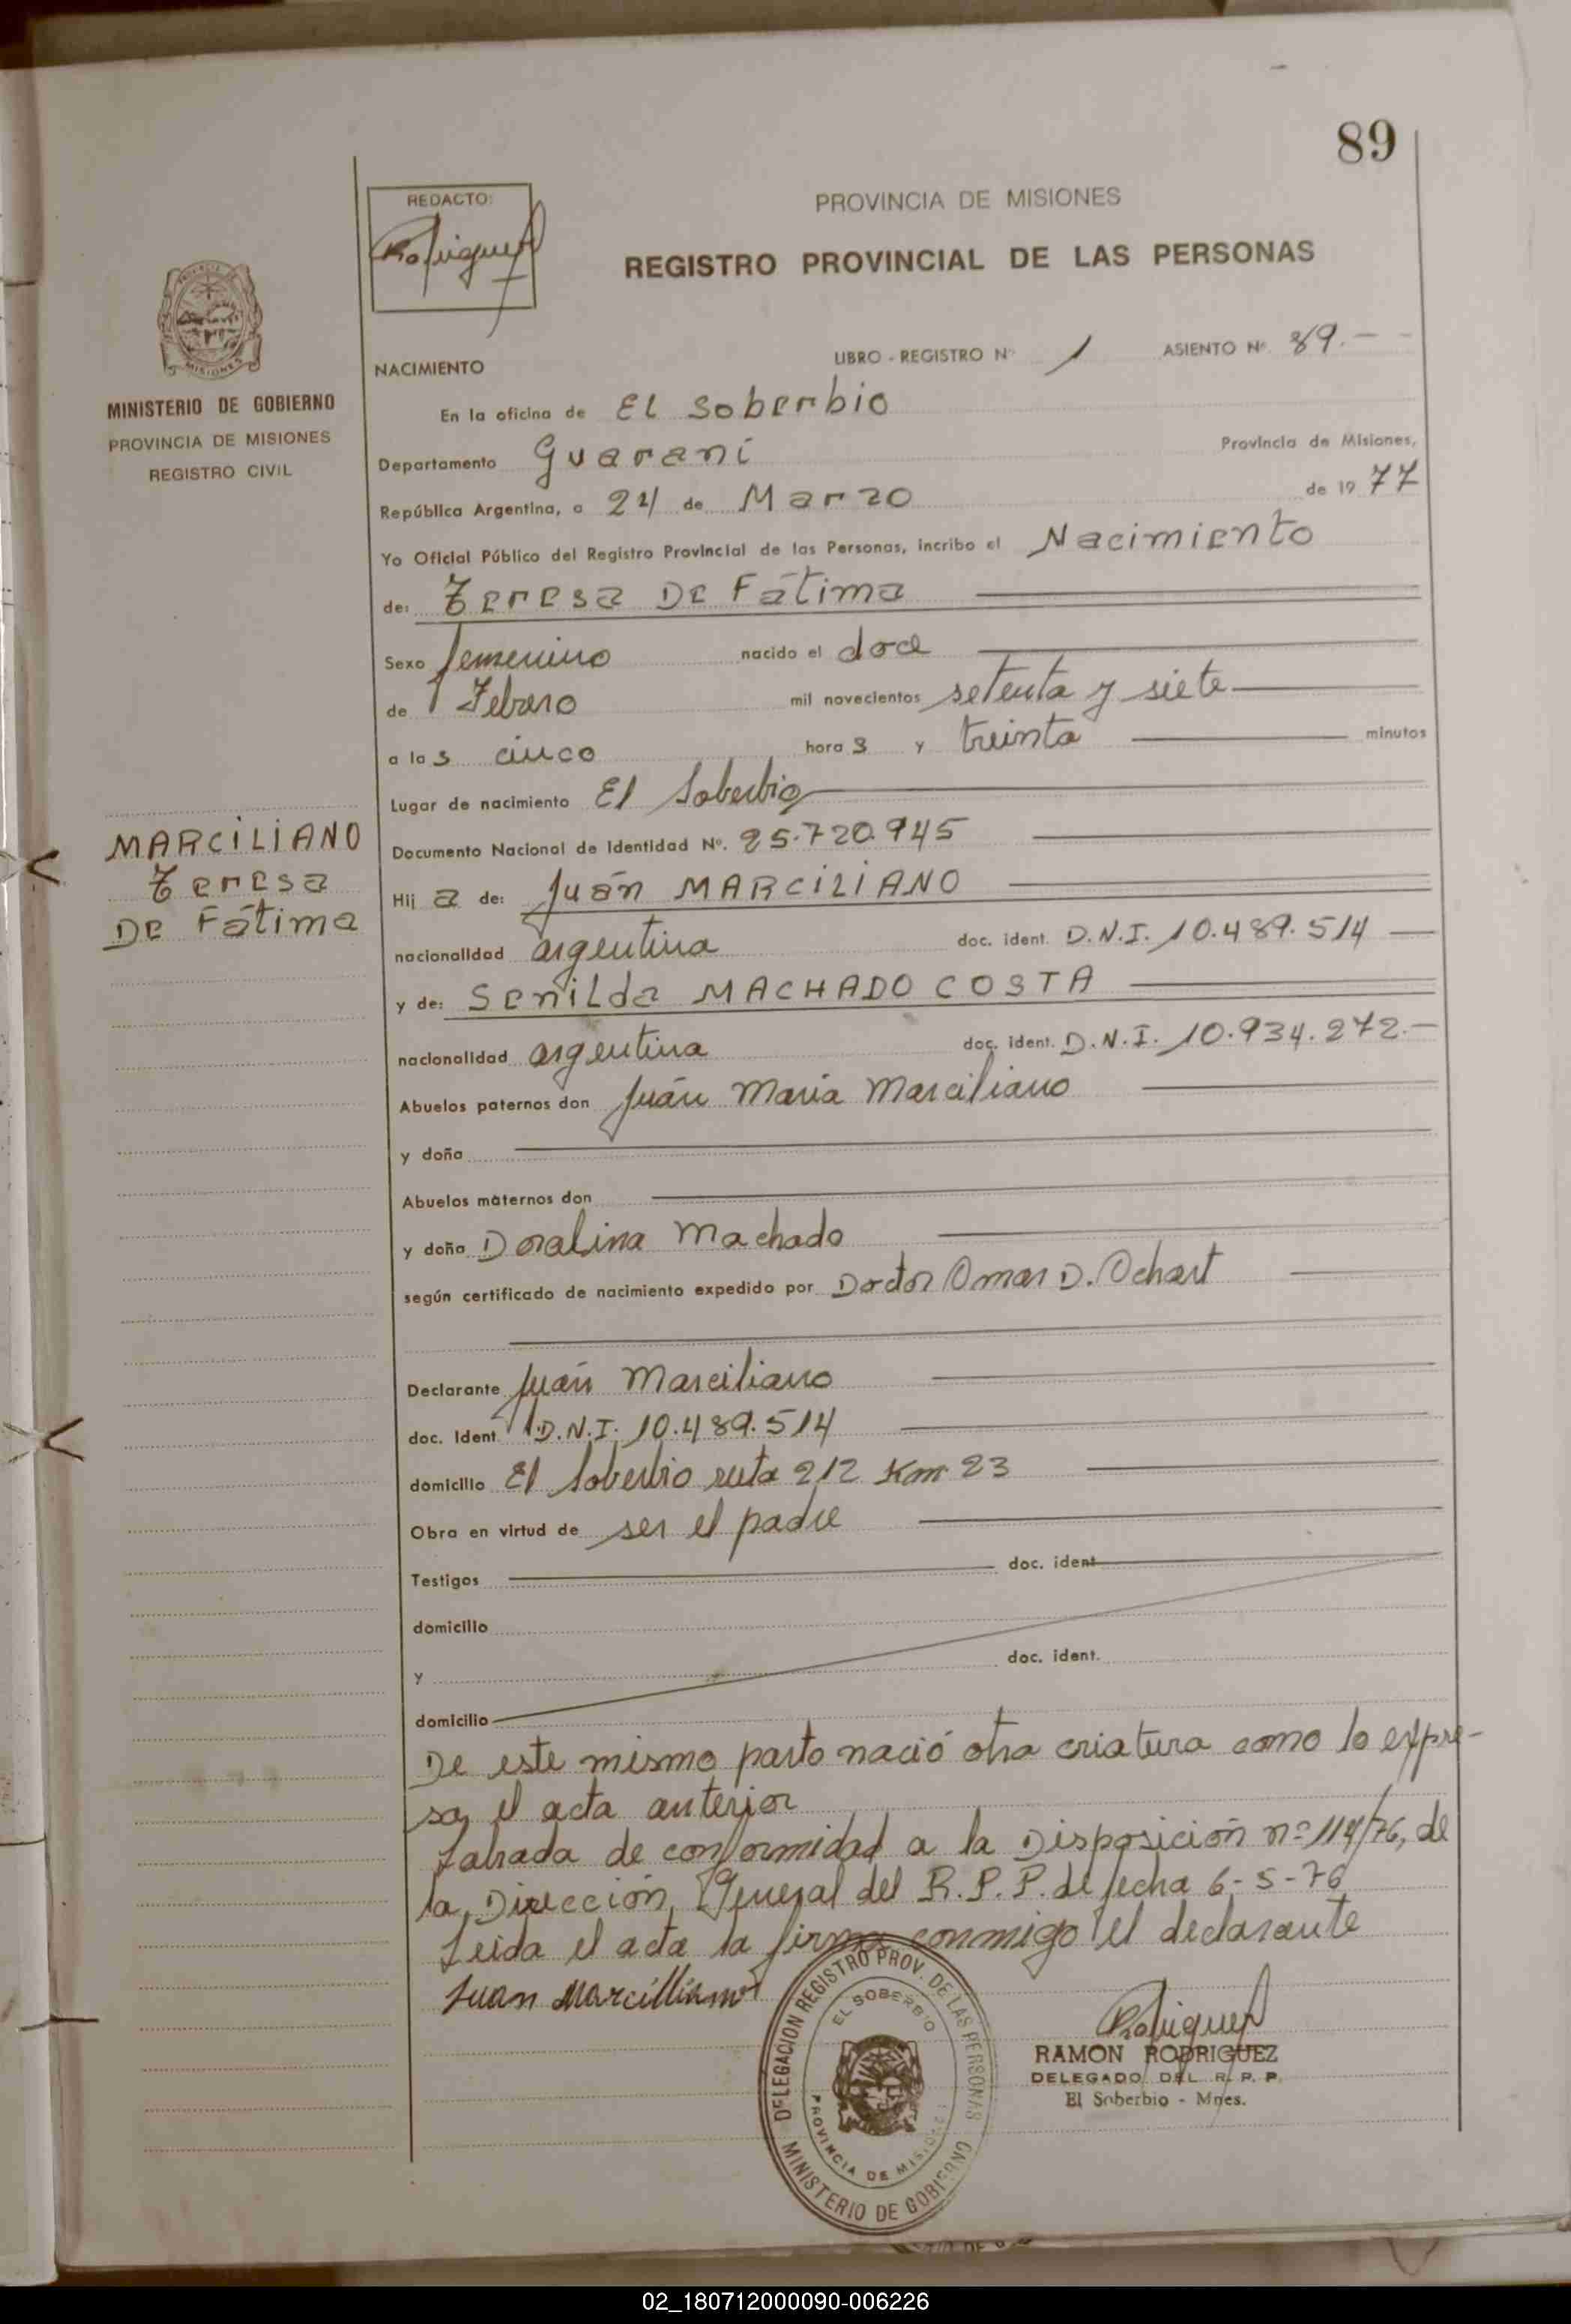 89
REDACTO:
Rodriguez
PROVINCIA DE MISIONES
REGISTRO PROVINCIAL DE LAS PERSONAS
MISIONES
MINISTERIO DE GOBIERNO
PROVINCIA DE MISIONES
REGISTRO CIVIL
NACIMIENTO
LIBRO - REGISTRO Nº 1 ASIENTO Nº 89.-
En la oficina de EL Soberbio
Departamento Guaraní Provincia de Misiones,
República Argentina, a 24 de Marzo de 19 77
Yo Oficial Público del Registro Provincial de las Personas, incribo el Nacimiento
de: Teresa De Fátima
Sexo femenino nacido el doce
de Febrero mil novecientos setenta y siete
a las cinco horas y treinta minutos
Lugar de nacimiento El Soberbio
MARCILIANO
Teresa
De Fátima
Documento Nacional de Identidad Nº. 25.720.945
Hij a de: Juán MARCILIANO
nacionalidad argentina doc. ident. D.N.I. 10.489.514
y de: Senilda MACHADO COSTA
nacionalidad argentina doc. ident. D.N.I. 10.934.272.-
Abuelos paternos don Juán Maria Marciliano
y doña
Abuelos maternos don
y doña Doralina Machado
según certificado de nacimiento expedido por Doctor Omar D. Ochart
Declarante Juán Marciliano
doc. Ident. D.N.I. 10.489.514
domicilio El Soberbio ruta 212 Km 23
Obra en virtud de ser el padre
Testigos doc. ident
domicilio
y doc. ident.
domicilio
De este mismo parto nació otra criatura como lo expre-
sa, el acta anterior
Labrada de conformidad a la Disposición nº 114/76, de
la Dirección General del R.P.P. de fecha 6-5-76
Leida el acta la firma conmigo el declarante
Juan Marcilliano
Rodriguez
RAMON RODRIGUEZ
DELEGADO DEL R. P. P.
El Soberbio - Mnes.
DELEGACION REGISTRO PROV. DE LAS PERSONAS
EL SOBERBIO
PROVINCIA DE MISIONES
MINISTERIO DE GOBIERNO
02_180712000090-006226